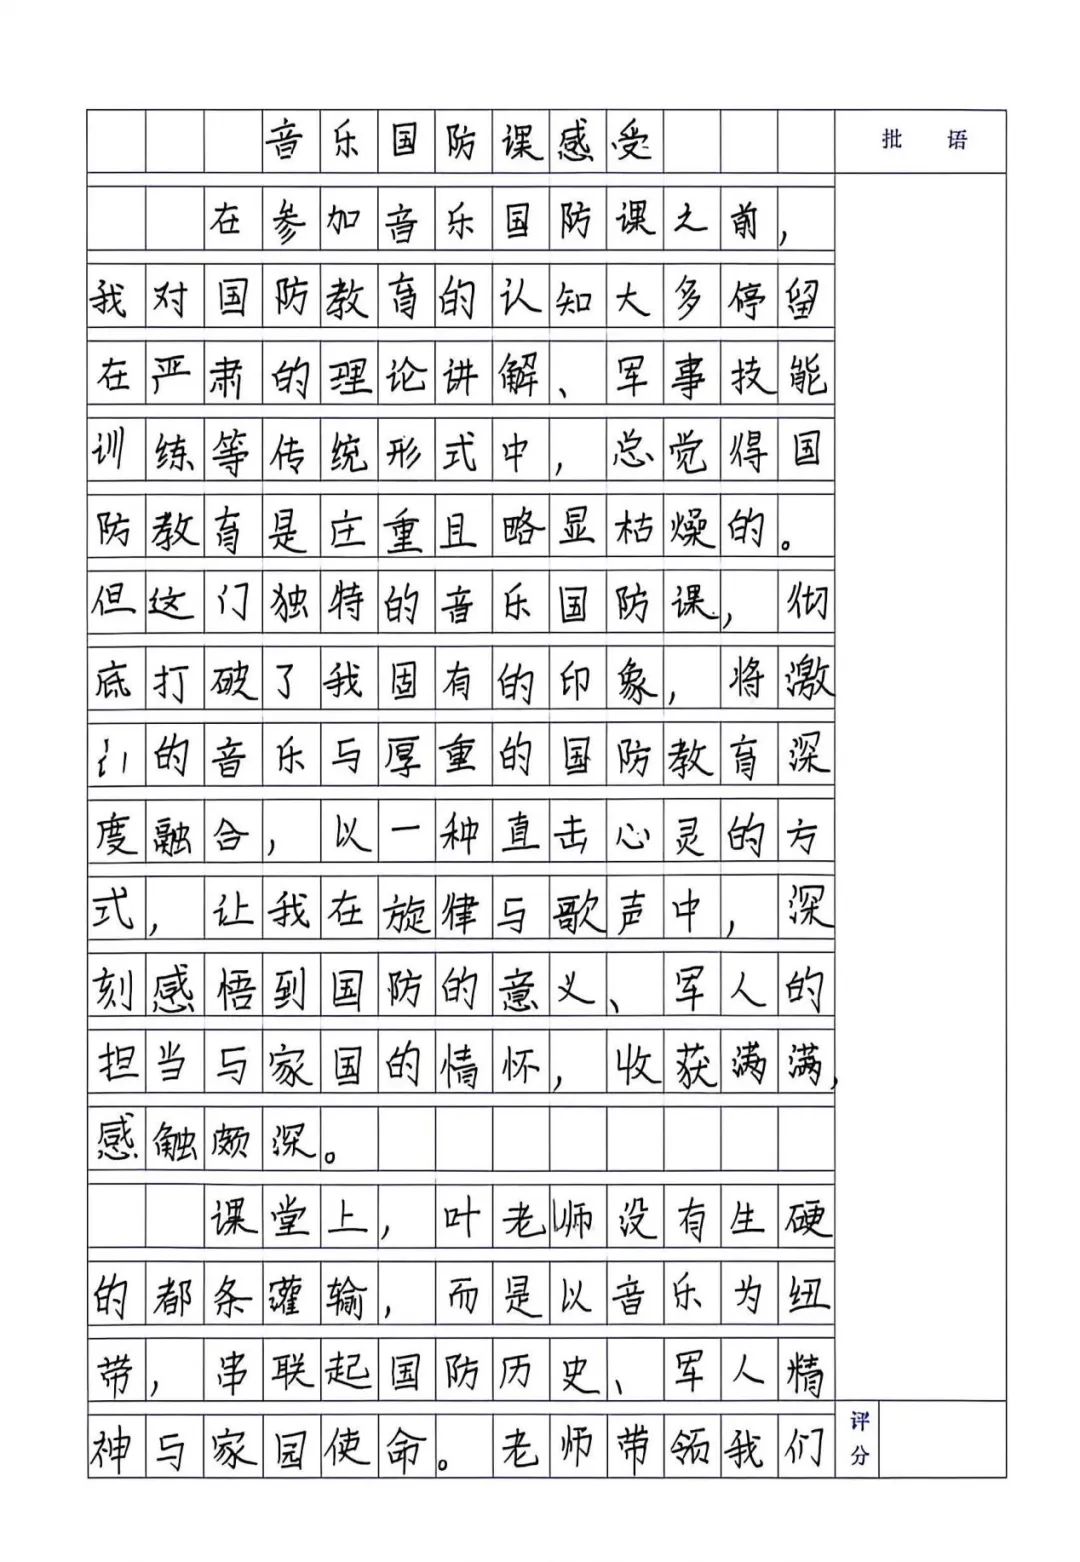 音乐国防课感受
批 语
在参加音乐国防课之前，
我对国防教育的认知大多停留
在严肃的理论讲解、军事技能
训练等传统形式中，总觉得国
防教育是庄重且略显枯燥的。
但这门独特的音乐国防课，彻
底打破了我固有的印象，将激
的音乐与厚重的国防教育深
度融合，以一种直击心灵的方
式，让我在旋律与歌声中，深
刻感悟到国防的意义、军人的
担当与家国的情怀，收获满满，
感触颇深。
课堂上，叶老师没有生硬
的都条灌输，而是以音乐为纽
带，串联起国防历史、军人精
神与家园使命。老师带领我们
评分